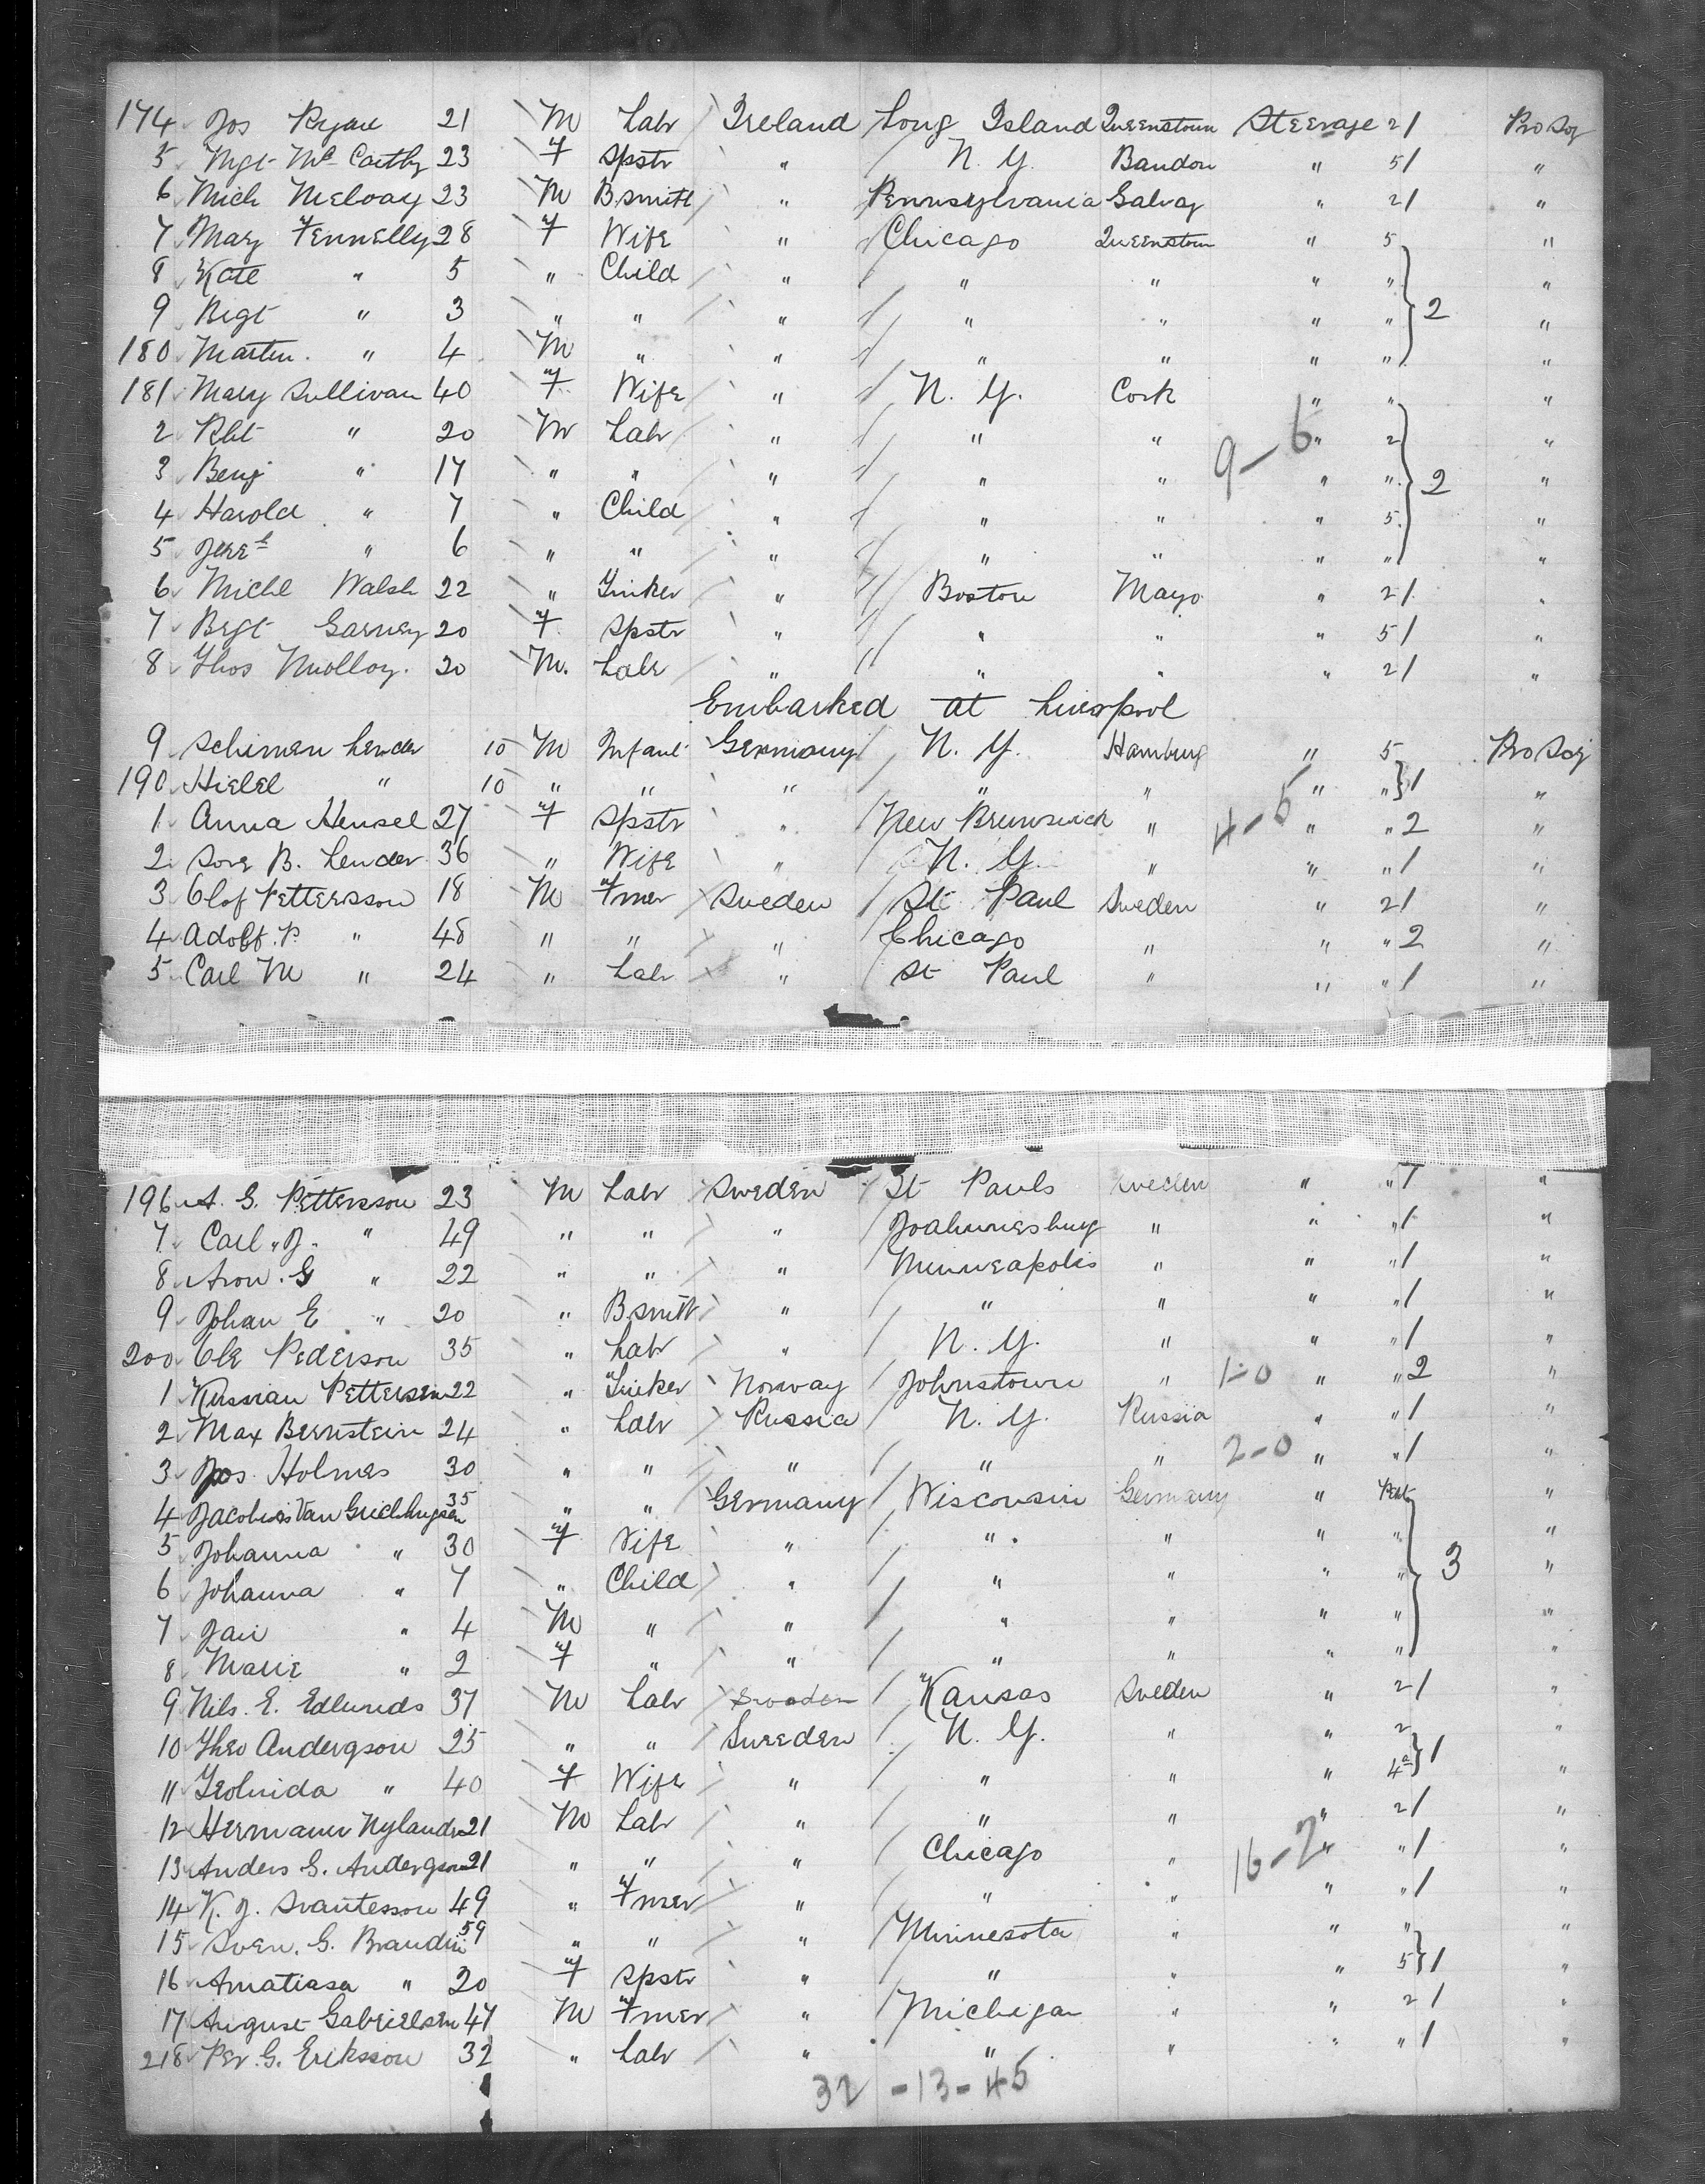 174 Jos Ryan 21 M Labr Ireland Long Island Queenstown Steerage 2 1 Pro Soj
5 Mgt McCarthy 23 F Spstr " N. Y. Bandon " 5 1 "
6 Mich McEloay 23 M B.smith " Pennsylvania Galway " 2 1 "
7 Mary Fennelly 28 F Wife " Chicago Queenstown " 5 "
8 Kate " 5 " Child " " " " " "
9 Brgt " 3 " " " " " " " 2 "
180 Martin " 4 M " " " " " " "
181 Mary Sullivan 40 F Wife " N. Y. Cork " " "
2 Rbt " 20 M Labr " " " 9-6 " 2 "
3 Benj " 17 " " " " " " " 2 "
4 Harold " 7 " Child " " " " 5 "
5 " 6 " " " " " " " "
6 Michl Walsh 22 " Tinker " Boston Mayo " 2 1 "
7 Brgt Garvey 20 F Spstr " " " " 5 1 "
8 Thos Molloy 20 M. Labr " " " " 2 1 "
Embarked at Liverpool
9 Schimen Lender 10 M Infant Germany N. Y. Hamburg " 5 Pro Soj
190 Hielel " 10 " " " " " " " 1 "
1 Anna Hensel 27 F Spstr " New Brunswick " 4-5 " " 2 "
2 Sore B. Lender 36 " Wife " N. Y. " " " 1 "
3 Olof Pettersson 18 M Fmer Sweden St Paul Sweden " 2 1 "
4 Adolf. P. " 48 " " " Chicago " " " 2 "
5 Carl M " 24 " Labr " St Paul " " " 1 "
196 A. G. Pettersson 23 M Labr Sweden St Pauls Sweden " " 1 "
7 Carl. J. " 49 " " " Joahnnesburg " " " 1 "
8 Aron. G " 22 " " " Minneapolis " " " 1 "
9 Johan E " 20 " B.smith " " " " " 1 "
200 Ole Pederson 35 " Labr " N. Y. " " " 1 "
1 Pettersen 22 " Tinker Norway Johnstown " 1-0 " " 2 "
2 Max Bernstein 24 " Labr Russia N. Y. Russia " " 1 "
3 Jos. Holmes 30 " " " " " 2-0 " " 1 "
4 Jacobus Van 35 " " Germany Wisconsin Germany " "
5 Johanna " 30 F Wife " " " " " "
6 Johanna " 7 " Child " " " " " 3 "
7 Jan " 4 M " " " " " " "
8 Marie " 2 F " " " " " " "
9 Nils. E. Edlunds 37 M Labr Sweden Kansas Sweden " 2 1 "
10 Theo Andergson 25 " " Sweeden N. Y. " " 2 "
11 " 40 F Wife " " " " 4a 1 "
12 Hermann Nylander 21 M Labr " " " " 2 1 "
13 Anders G. Andergson 21 " " " Chicago " 16-2 " " 1 "
14 K. J. Svantesson 49 " Fmer " " " " " 1 "
15 Sven. G. Brandin 59 " " " Minnesota " " " "
16 Amatiasa " 20 F Spstr " " " " 5 1 "
17 August Gabrielsen 47 M Fmer " Michigan " " 2 1 "
218 Per. G. Eriksson 32 " Labr " " " " " 1 "
32 - 13 - 45